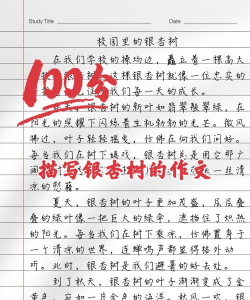 Study Title
Date
校园里的银杏树
在我们学校的操场边，矗立着一棵高大
这棵银杏树就像一位忠实的
我们每一天的成长。
100分
的新叶如翡翠般翠绿，在
阳光的照耀下闪烁着生机勃勃的光芒。微风
拂过，叶子轻轻摇曳，仿佛在向我们问好。
每当我们在树下嬉戏，银杏树
描写银杏树的作文
凉的慰藉。
夏天，银杏树的叶子更加茂盛，层层叠
叠的绿叶像一把巨大的绿伞，遮挡住了炽热
的阳光。每当我们在树下乘凉，仿佛置身于
一个清凉的世界，连蝉鸣声都显得格外动
听。此时，银杏树是我们避暑的好去处。
到了秋天，银杏树的叶子渐渐变成了金
黄色，宛如一片金色的海洋。秋风一吹，银